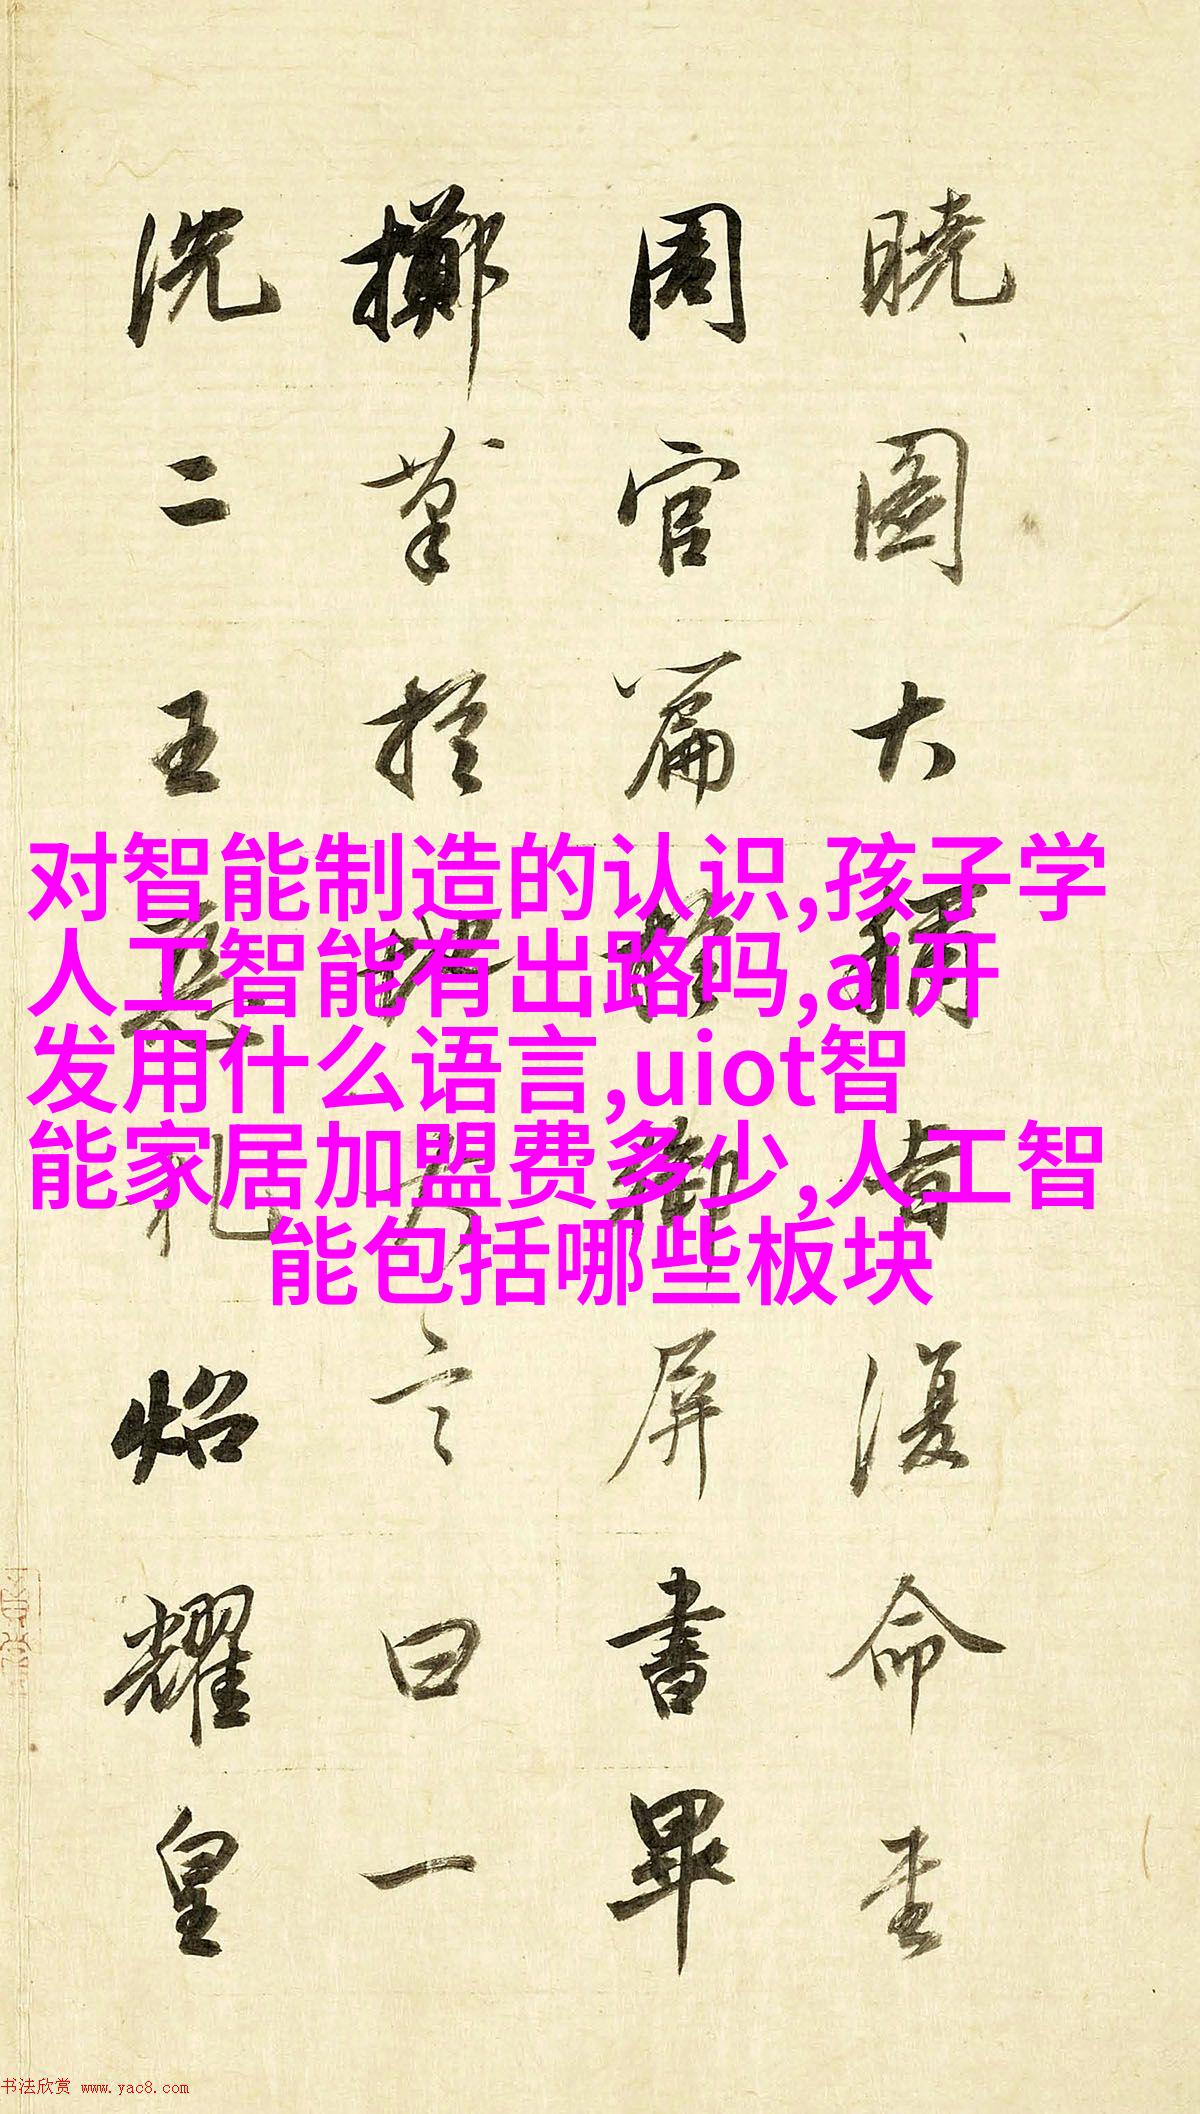 曉圖大稱旨復命書
周官篇於御屏書畢
擲筆於地大言曰一
洗二王惡札照耀皇
对智能制造的认识,孩子学
人工智能有出路吗,ai开
发用什么语言,uiot智
能家居加盟费多少,人工智
能包括哪些板块
书法欣赏 www.yac8.com